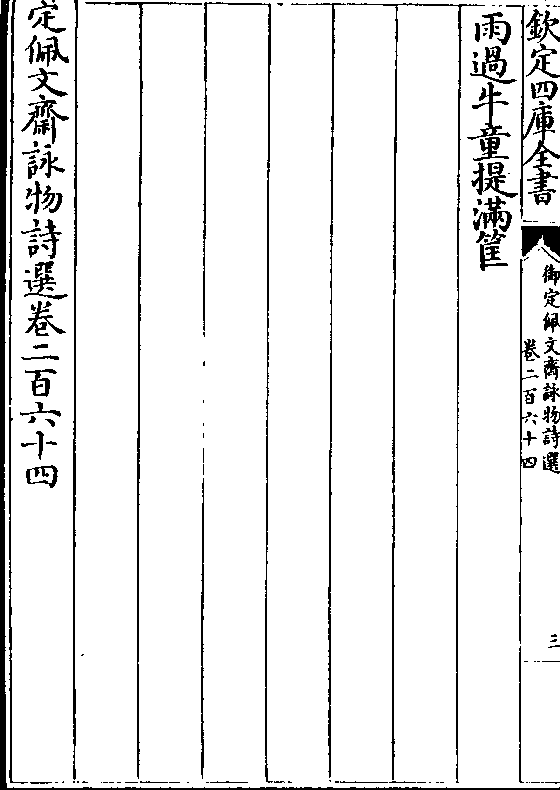 欽定四庫全書
御定佩文齋詠物詩選
卷二百六十四
三
雨過牛童提滿筐
定佩文齋詠物詩選卷二百六十四